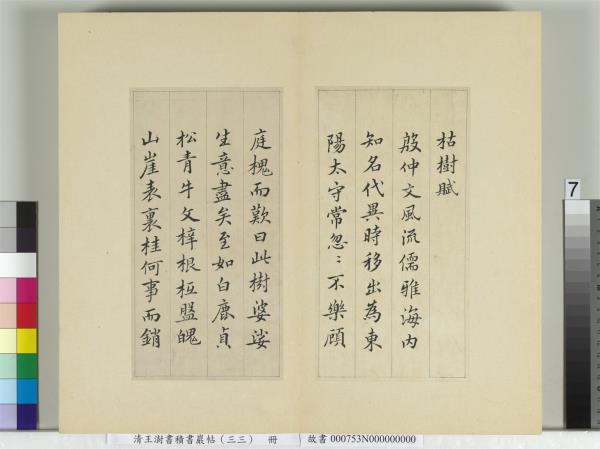 枯樹賦
殷仲文風流儒雅海內
知名代異時移出為東
陽太守常忽〻不樂顧
庭槐而歎曰此樹婆娑
生意盡矣至如白鹿貞
松青牛文梓根柢盤魄
山崖表裏桂何事而銷
7
清王澍書積書巖帖（三三） 冊 故書 000753N000000000